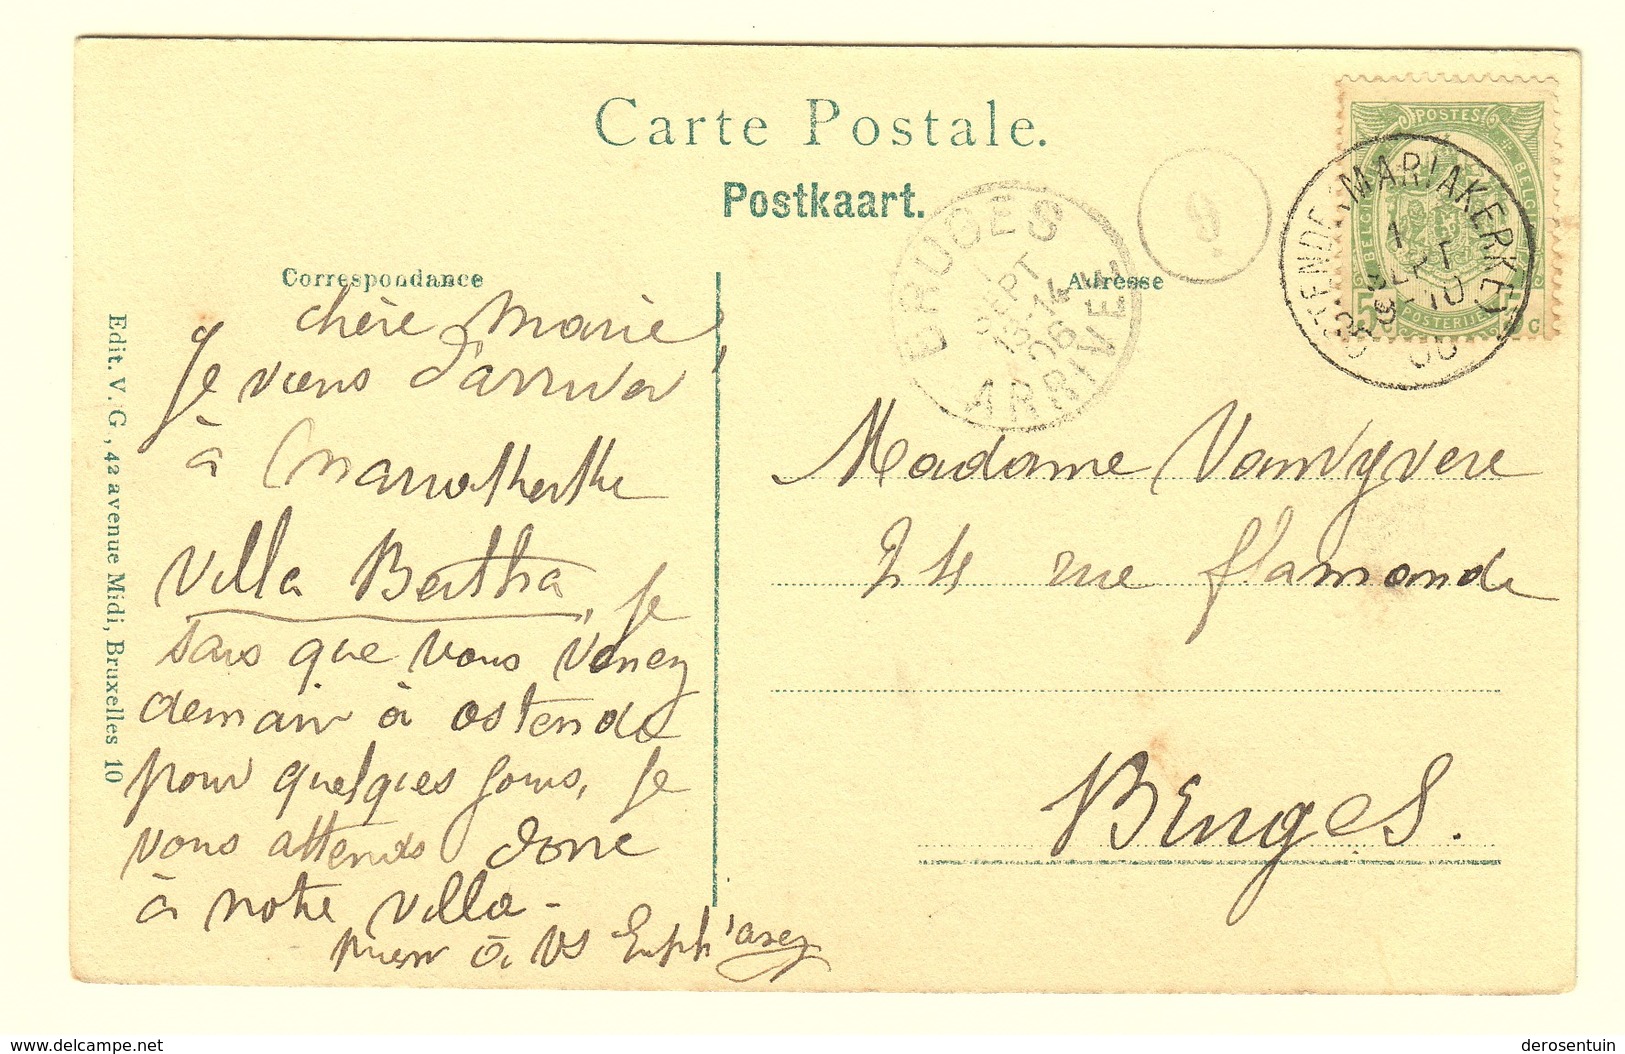 Carte Postale.
Postkaart.
Correspondance
Adresse
chère Marie,
Je viens d'arriver
à
Villa Bertha, Je
sais que vous venez
demain à ostende
pour quelques jours, Je
vous attends donc
à notre villa -
à vs
Madame Vanvyvere
24 rue flamande
Bruges.
Edit. V. G., 42 avenue Midi, Bruxelles 10
BRUGES
1
SEPT
13-14
06
ARRIVEE
OSTENDE-MARIAKERKE
1
SEPT
POSTES
BELGIQUE
BELGIE
POSTERIJEN
5 c
5 c
www.delcampe.net
derosentuin